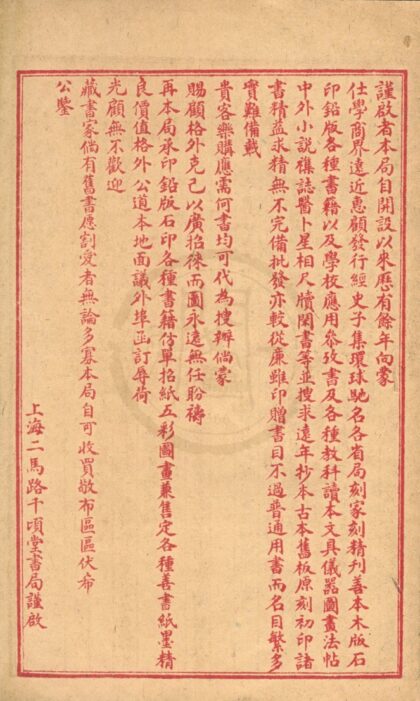 謹啟者本局自開設以來歷有餘年向蒙
仕學商界遠近惠顧發行經史子集環球馳名各省局刻家刻精刊善本木版石
印鉛版各種書籍以及學校應用參攷書及各種教科讀本文具儀器圖畫法帖
中外小說襍誌醫卜星相尺牘閑書等並搜求遠年抄本古本舊板原刻初印諸
書精益求精無不完備批發亦較從廉雖印贈書目不過普通用書而名目繁多
實難備載
貴客樂購應需何書均可代為搜辦倘蒙
賜顧格外克己以廣招徠而圖永遠無任盼禱
再本局承印鉛版石印各種書籍仿單招紙五彩圖畫兼售定各種善書紙墨精
良價值格外公道本地面議外埠函訂辱荷
光顧無不歡迎
藏書家倘有舊書愿割愛者無論多寡本局自可收買敬布區區伏希
公鑒
上海二馬路千頃堂書局謹啟